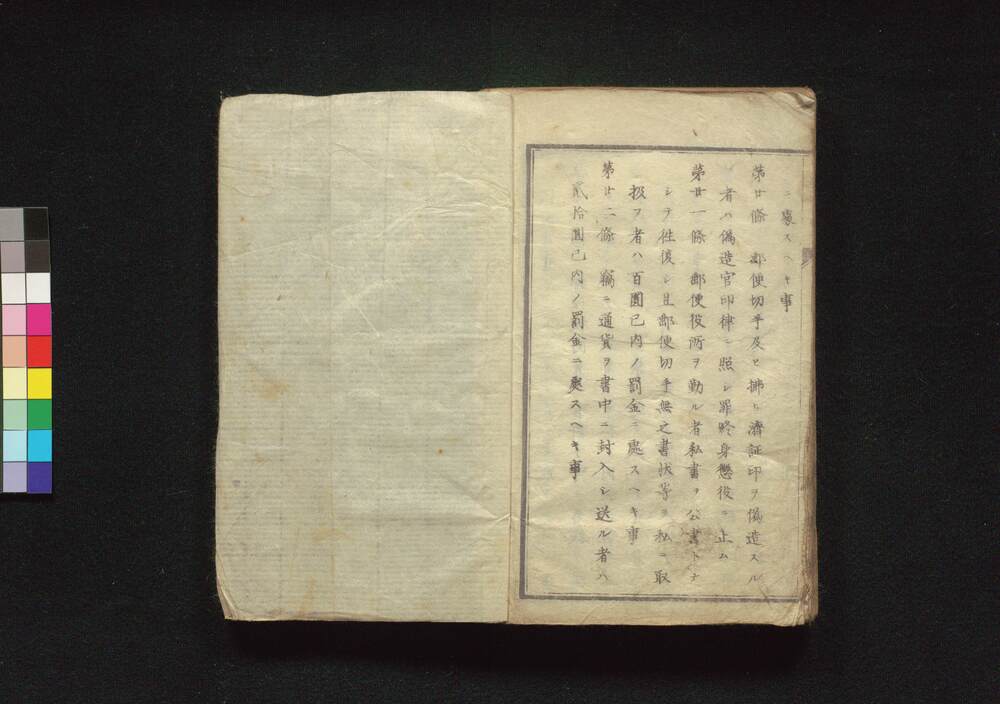 ニ處スヘキ事
第廿條　郵便切手及ヒ拂ヒ濟証印ヲ偽造スル
者ハ偽造官印律ニ照シ罪終身懲役ニ止ム
第廿一條　郵便役所ヲ勤ル者私書ヲ公書トナ
シテ往復シ且郵便切手無之書状等ヲ私ニ取
扱フ者ハ百圓已内ノ罰金ニ處スヘキ事
第廿二條　竊ニ通貨ヲ書中ニ封入シ送ル者ハ
貳拾圓已内ノ罰金ニ處スヘキ事